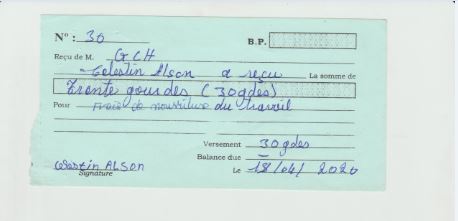 N° : 30 B.P.
Reçu de M. GCH
Celestin Alson a reçu La somme de
Trente gourdes (30gdes)
Pour Frais de nourriture du travail
Versement 30gdes
Balance due —
Celestin ALSON Le 18/04/2020
Signature